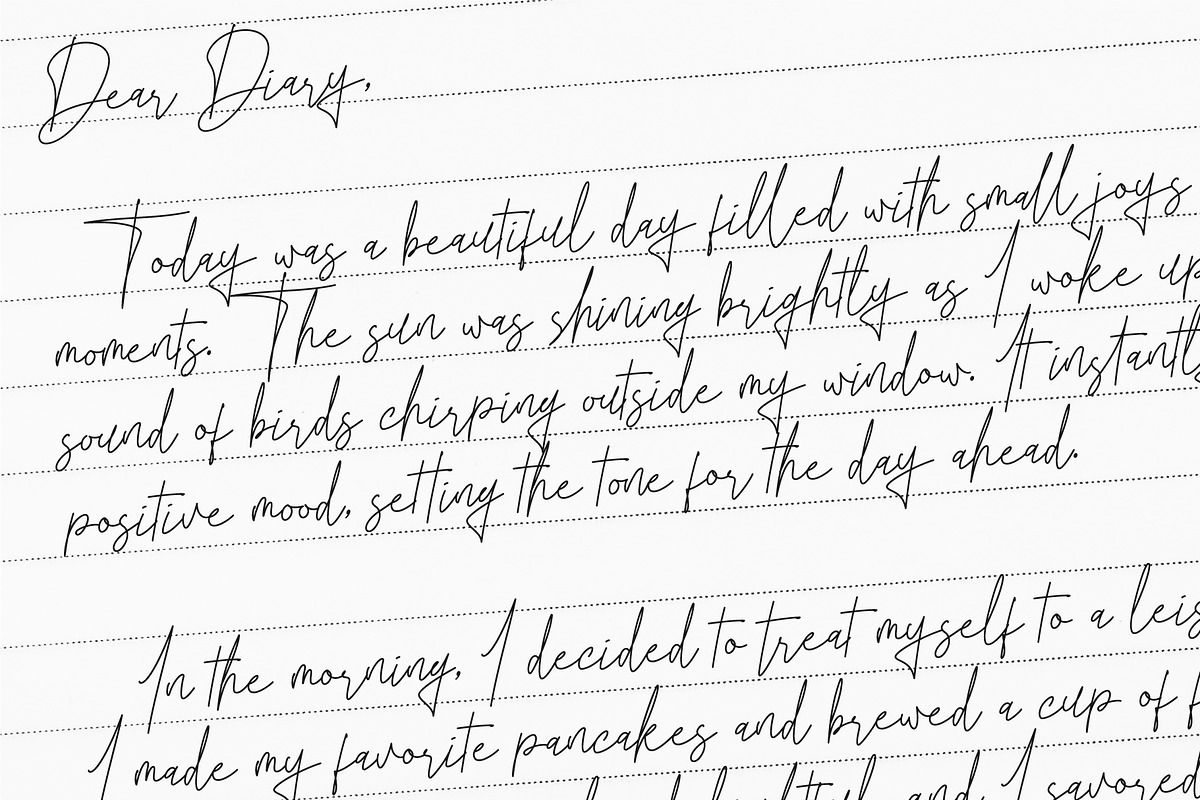 Dear Diary,
Today was a beautiful day filled with small joys
moments. The sun was shining brightly as I woke up
sound of birds chirping outside my window. It instantl
positive mood, setting the tone for the day ahead.
In the morning, I decided to treat myself to a leis
I made my favorite pancakes and brewed a cup of f
and I savored